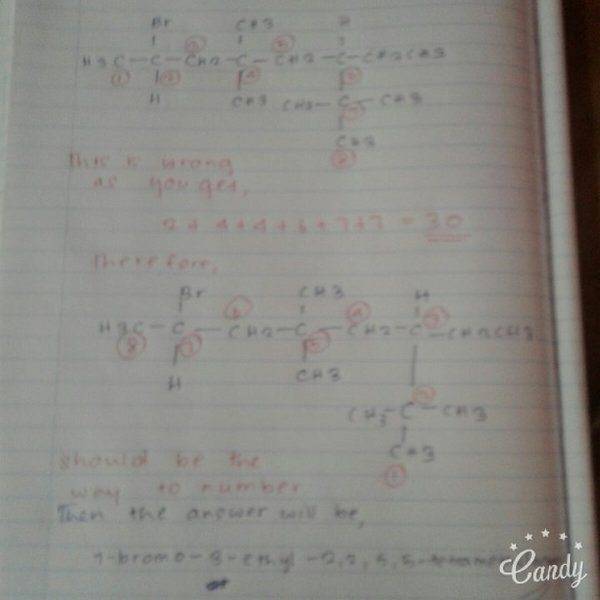 Br CH3 H
H3C - C - CH2 - C - CH2 - C - CH2CH3
H CH3 CH3 - C - CH3
CH3
This is wrong
as you get,
2 + 4 + 4 + 6 + 7 + 7 = 30
Therefore,
Br CH3 H
H3C - C - CH2 - C - CH2 - C - CH2CH3
H CH3
CH3 - C - CH3
CH3
should be the
way to number
Then the answer will be,
7-bromo-3-ethyl-2,2,5,5-
Candy